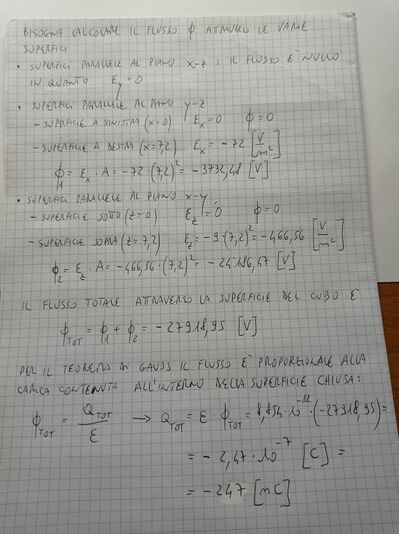 BISOGNA CALCOLARE IL FLUSSO ϕ ATTRAVERSO LE VARIE
SUPERFICI
• SUPERFICI PARALLELE AL PIANO x-z : IL FLUSSO E' NULLO
IN QUANTO E_y = 0
• SUPERFICI PARALLELE AL PIANO y-z
- SUPERFICIE A SINISTRA (x=0) E_x = 0 ϕ = 0
- SUPERFICIE A DESTRA (x=7,2) E_x = -72 [V/m²]
ϕ_1 = E_x · A = -72 · (7,2)² = -3732,48 [V]
• SUPERFICI PARALLELE AL PIANO x-y
- SUPERFICIE SOTTO (z=0) E_z = 0 ϕ = 0
- SUPERFICIE SOPRA (z=7,2) E_z = -9 · (7,2)² = -466,56 [V/m²]
ϕ_2 = E_z · A = -466,56 · (7,2)² = -24186,47 [V]
IL FLUSSO TOTALE ATTRAVERSO LA SUPERFICIE DEL CUBO E'
ϕ_TOT = ϕ_1 + ϕ_2 = -27918,95 [V]
PER IL TEOREMA DI GAUSS IL FLUSSO E' PROPORZIONALE ALLA
CARICA CONTENUTA ALL'INTERNO DELLA SUPERFICIE CHIUSA:
ϕ_TOT = Q_TOT/ε → Q_TOT = ε · ϕ_TOT = 8,854·10⁻¹² · (-27918,95) =
= -2,47 · 10⁻⁷ [C] =
= -247 [nC]